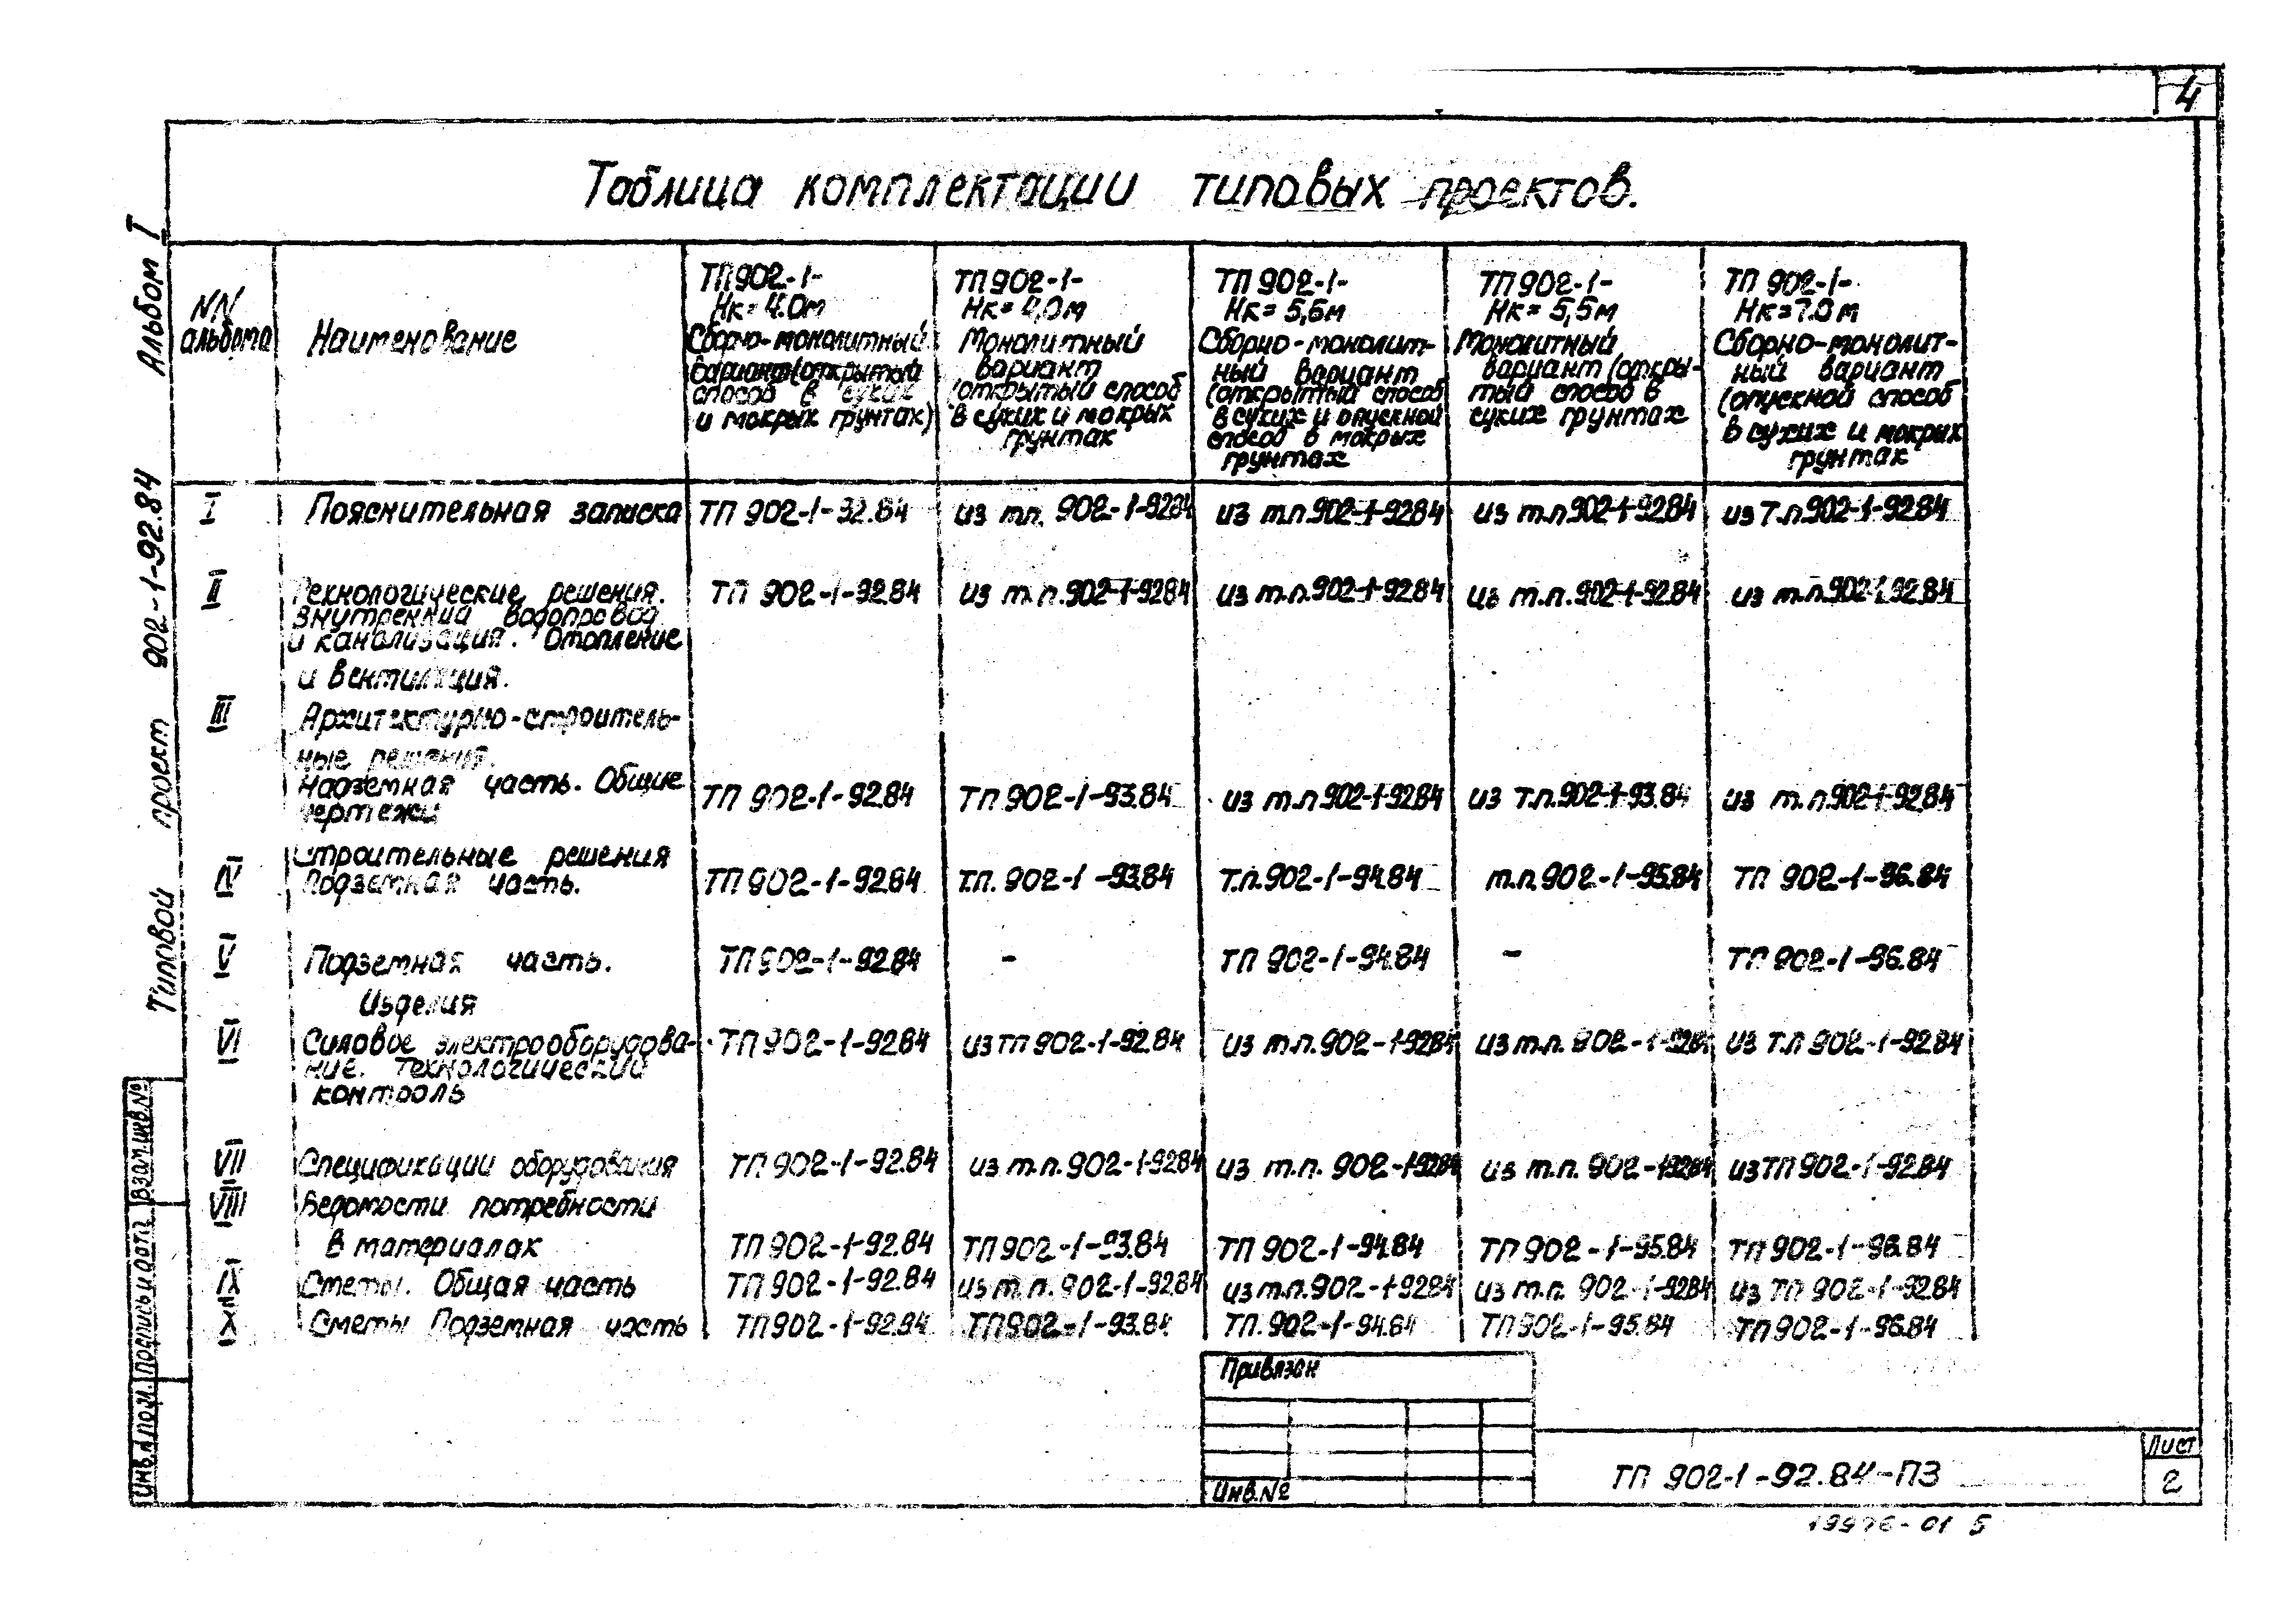 4
Таблица комплектации типовых проектов.
Альбом I
Типовой проект 902-1-92.84
NN альбома
Наименование
ТП 902-1-
Нк= 4.0м
Сборно-монолитный
вариант (открытый
способ в сухих
и мокрых грунтах)
ТП 902-1-
Нк= 4,0м
Монолитный
вариант
(открытый способ
в сухих и мокрых
грунтах
ТП 902-1-
Нк= 5,5м
Сборно-монолит-
ный вариант
(открытый способ
в сухих и опускной
способ в мокрых
грунтах
ТП 902-1-
Нк= 5,5м
Монолитный
вариант (откры-
тый способ в
сухих грунтах
ТП 902-1-
Нк=7.0м
Сборно-монолит-
ный вариант
(опускной способ
в сухих и мокрых
грунтах
I Пояснительная записка ТП 902-1-92.84 из т.п. 902-1-92.84 из т.п.902-1-92.84 из т.п.902-1-92.84 из т.п.902-1-92.84
II Технологические решения. ТП 902-1-92.84 из т.п.902-1-92.84 из т.п.902-1-92.84 из т.п.902-1-92.84 из т.п.902-1-92.84
Внутренний водопровод
и канализация. Отопление
и вентиляция.
III Архитектурно-строитель-
ные решения.
Надземная часть. Общие
чертежи ТП 902-1-92.84 ТП 902-1-93.84 из т.п.902-1-92.84 из т.п.902-1-93.84 из т.п.902-1-92.84
Строительные решения
IV Подземная часть. ТП 902-1-92.84 т.п. 902-1-93.84 т.п.902-1-94.84 т.п.902-1-95.84 ТП 902-1-96.84
V Подземная часть. ТП 902-1-92.84 - ТП 902-1-94.84 - ТП 902-1-96.84
Изделия
VI Силовое электрооборудова- ТП 902-1-92.84 из ТП 902-1-92.84 из т.п.902-1-92.84 из т.п. 902-1-92.84 из т.п 902-1-92.84
ние. Технологический
контроль
VII Спецификации оборудования ТП 902-1-92.84 из т.п. 902-1-92.84 из т.п. 902-1-92.84 из т.п. 902-1-92.84 из ТП 902-1-92.84
VIII Ведомости потребности
в материалах ТП 902-1-92.84 ТП 902-1-93.84 ТП 902-1-94.84 ТП 902-1-95.84 ТП 902-1-96.84
IX Сметы. Общая часть ТП 902-1-92.84 из т.п. 902-1-92.84 из т.п.902-1-92.84 из т.п. 902-1-92.84 из ТП 902-1-92.84
X Сметы Подземная часть ТП 902-1-92.84 ТП 902-1-93.84 ТП.902-1-94.84 ТП 902-1-95.84 ТП 902-1-96.84
Взам.инв.№
Подпись и дата
Инв.№ подл.
Привязан
Инв.№
ТП 902-1-92.84-ПЗ
Лист
2
19976-01 5